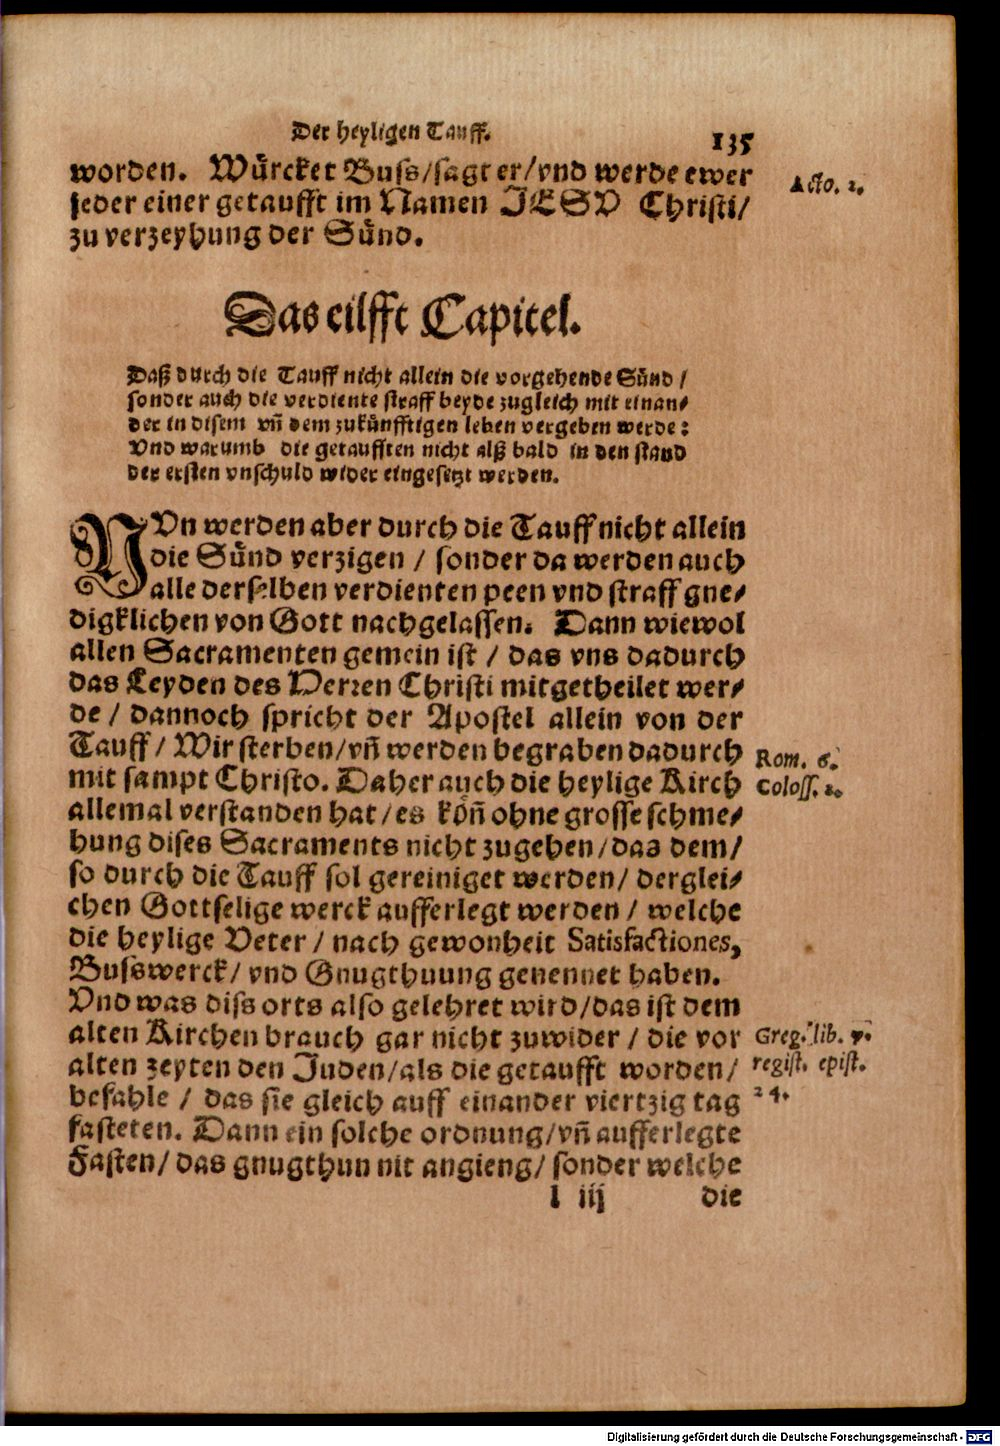 Der heyligen Tauff. 135
worden. Würcket Buſs/ſagt er/vnd werde ewer
jeder einer getaufft im Namen JESV Chriſti/
zu verzeyhung der Sünd.
Acto. 2.
Das eilfft Capitel.
Daß durch die Tauff nicht allein die vorgehende Sünd /
ſonder auch die verdiente ſtraff beyde zugleich mit einan⸗
der in diſem vñ dem zukünfftigen leben vergeben werde:
Vnd warumb die getaufften nicht alß bald in den ſtand
der erſten vnſchuld wider eingeſetzt werden.
NVn werden aber durch die Tauff nicht allein
die Sünd verzigen / ſonder da werden auch
alle derſelben verdienten peen vnd ſtraff gne⸗
digklichen von Gott nachgelaſſen. Dann wiewol
allen Sacramenten gemein iſt / das vns dadurch
das Leyden des Herꝛen Chriſti mitgetheilet wer⸗
de / dannoch ſpricht der Apoſtel allein von der
Tauff / Wir ſterben/vñ werden begraben dadurch
mit ſampt Chriſto. Daher auch die heylige Kirch
Rom. 6.
Coloſſ. 2.
allemal verſtanden hat/es köñ ohne groſſe ſchme⸗
hung diſes Sacraments nicht zugehen/das dem/
ſo durch die Tauff ſol gereiniget werden/ derglei⸗
chen Gottſelige werck aufferlegt werden / welche
die heylige Veter / nach gewonheit Satisfactiones,
Buſswerck/ vnd Gnugthuung genennet haben.
Vnd was diſs orts alſo gelehret wird/das iſt dem
alten Kirchen brauch gar nicht zuwider / die vor
alten zeyten den Juden/als die getaufft worden/
befahle / das ſie gleich auff einander viertzig tag
faſteten. Dann ein ſolche ordnung/vñ aufferlegte
Faſten/ das gnugthun nit angieng/ ſonder welche
Greg. lib. 7.
regiſt. epiſt.
24.
l iij die
Digitalisierung gefördert durch die Deutsche Forschungsgemeinschaft - DFG